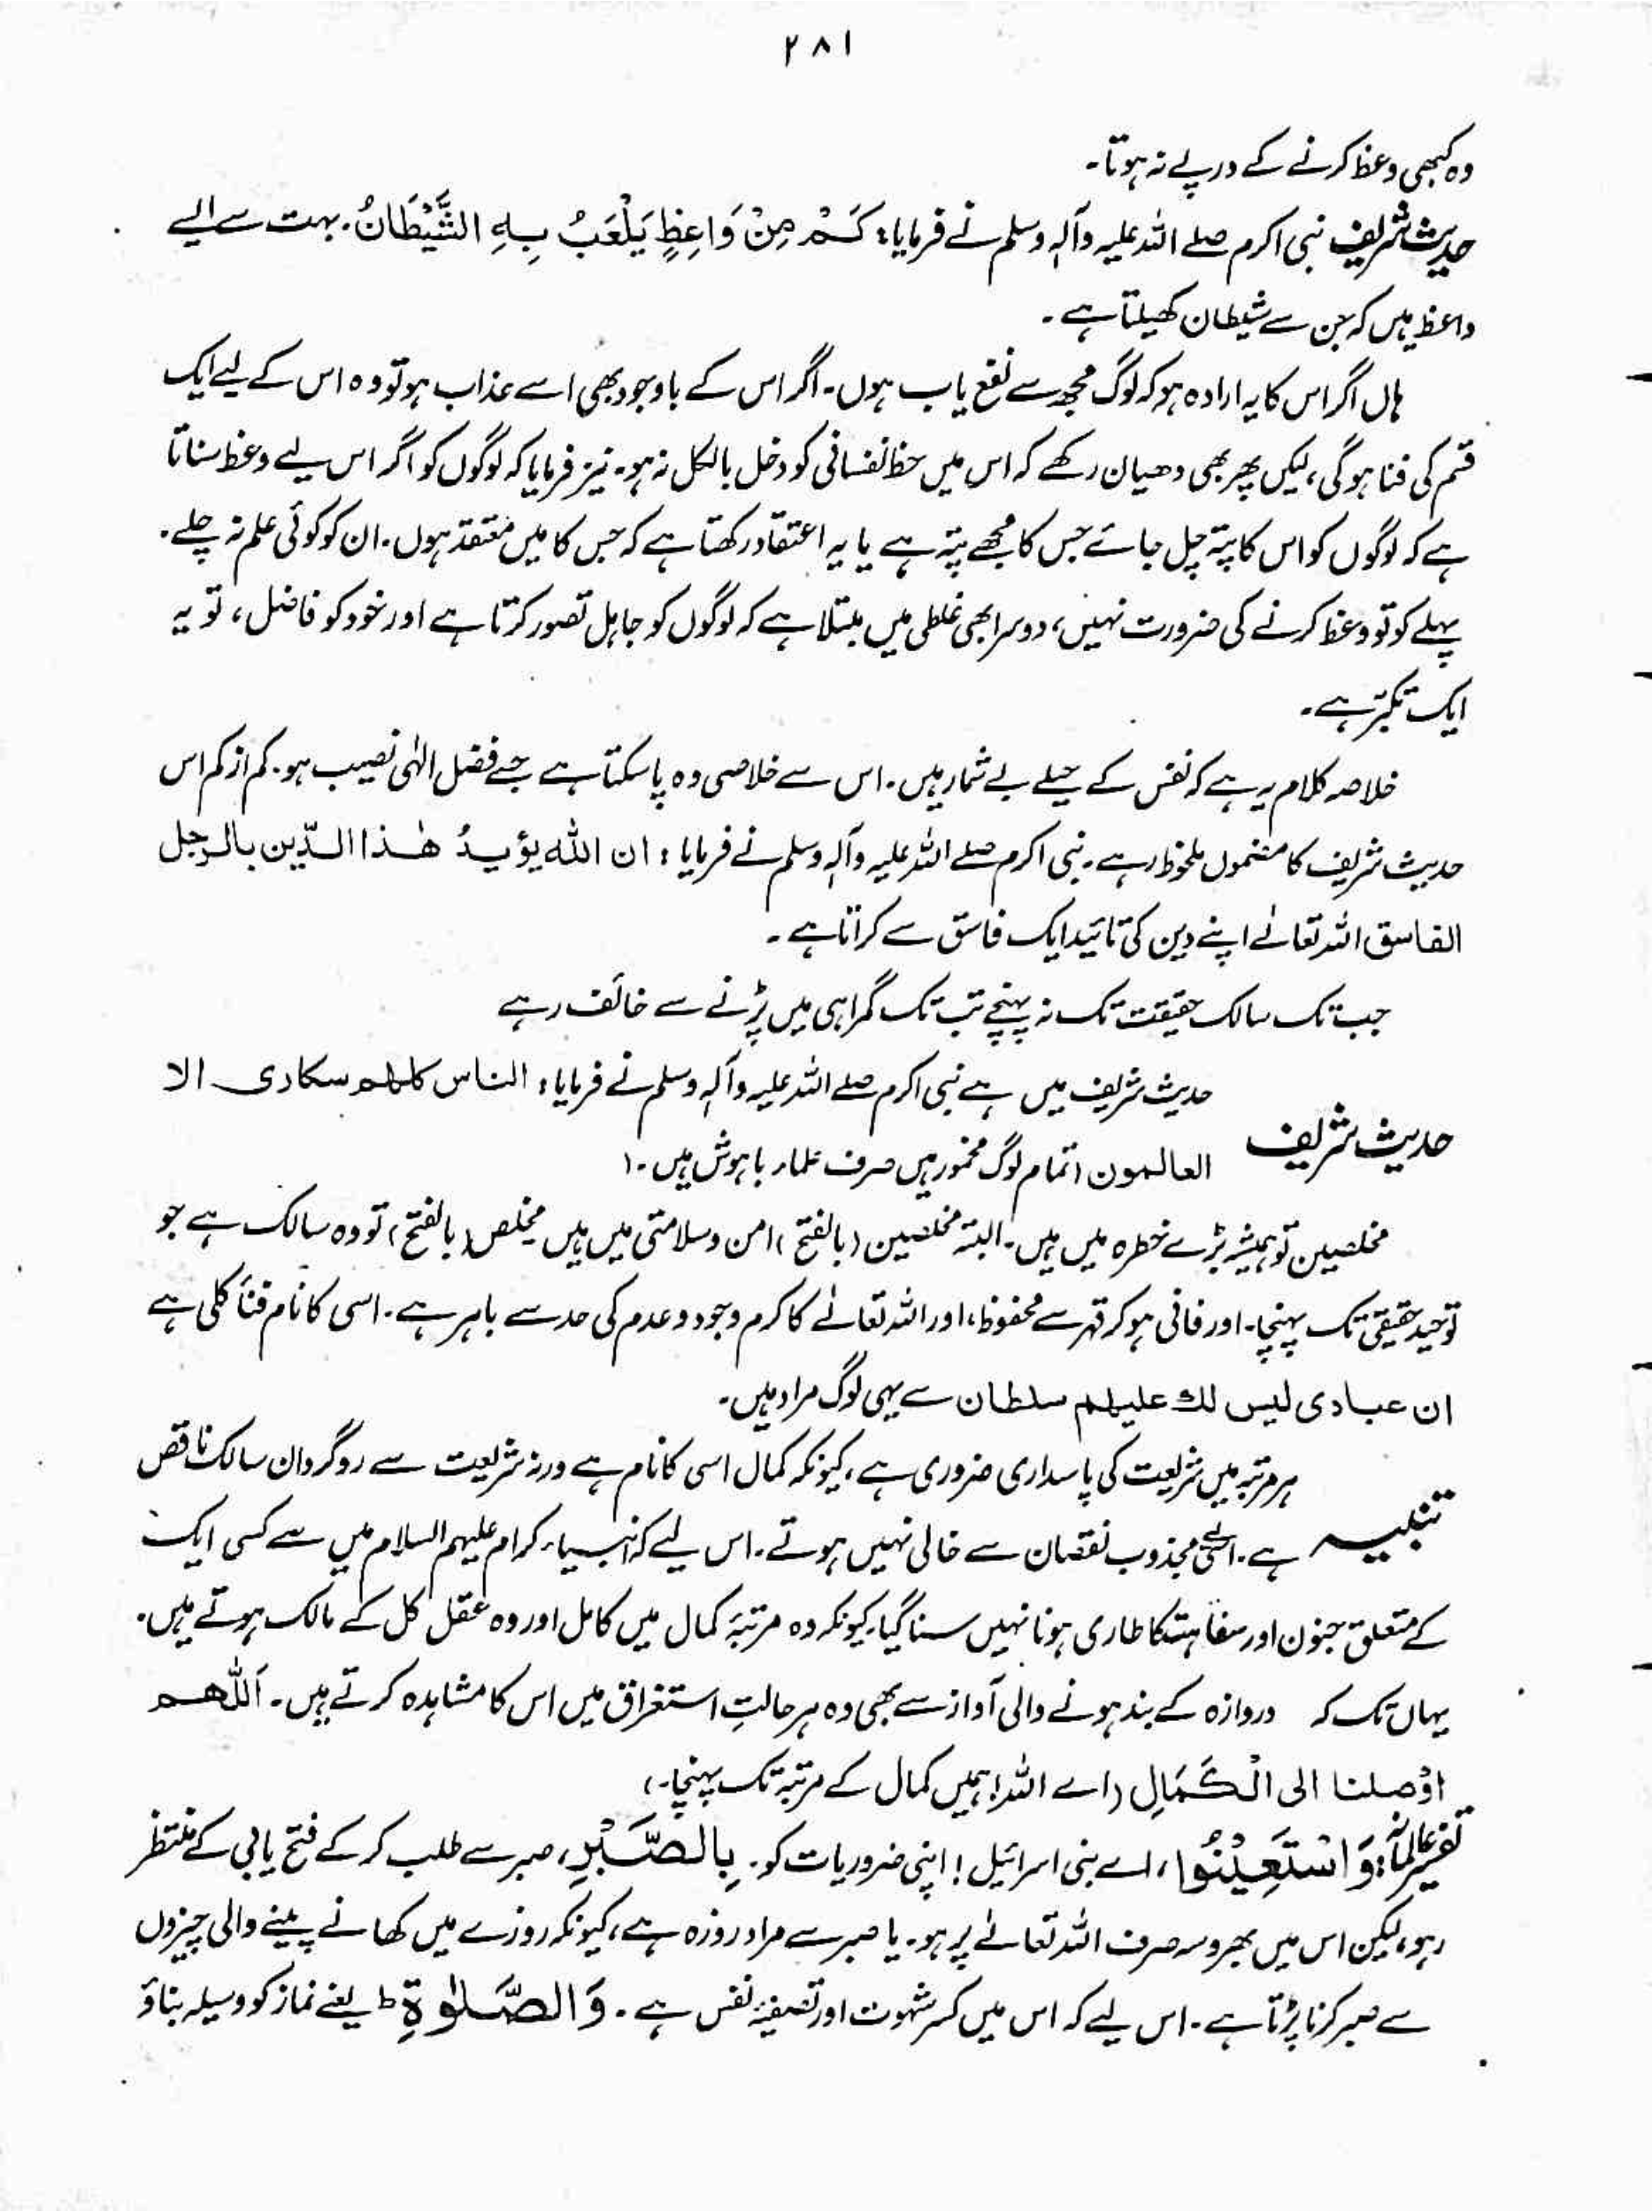 ۲۸۱
وہ کبھی وعظ کرنے کے درپے نہ ہوتا۔
حدیث شریف نبی اکرم صلے اللہ علیہ وآلہ وسلم نے فرمایا: كَمْ مِنْ وَاعِظٍ يَلْعَبُ بِهِ الشَّيْطَانُ. بہت سے ایسے
واعظ ہیں کہ جن سے شیطان کھیلتا ہے۔
ہاں اگر اس کا یہ ارادہ ہو کہ لوگ مجھ سے نفع یاب ہوں۔ اگر اس کے باوجود بھی اسے عذاب ہو تو وہ اس کے لیے ایک
قسم کی فنا ہوگی، لیکن پھر بھی دھیان رکھے کہ اس میں حظ نفسانی کو دخل بالکل نہ ہو۔ نیز فرمایا کہ لوگوں کو اگر اس لیے وعظ سناتا
ہے کہ لوگوں کو اس کا پتہ چل جائے جس کا مجھے پتہ ہے یا یہ اعتقاد رکھتا ہے کہ جس کا میں معتقد ہوں۔ ان کو کوئی علم نہ چلے۔
پہلے کو تو وعظ کرنے کی ضرورت نہیں، دوسرا بھی غلطی میں مبتلا ہے کہ لوگوں کو جاہل تصور کرتا ہے اور خود کو فاضل، تو یہ
ایک تکبّر ہے۔
خلاصہ کلام یہ ہے کہ نفس کے حیلے بے شمار ہیں۔ اس سے خلاصی وہ پا سکتا ہے جسے فضل الٰہی نصیب ہو۔ کم از کم اس
حدیث شریف کا مضمون ملحوظ رہے۔ نبی اکرم صلے اللہ علیہ وآلہ وسلم نے فرمایا: ان الله يؤيدُ هٰذا الدّين بالرجل
الفاسق اللہ تعالےٰ اپنے دین کی تائید ایک فاسق سے کراتا ہے۔
جب تک سالک حقیقت تک نہ پہنچے تب تک گمراہی میں پڑنے سے خائف رہے
حدیث شریف حدیث شریف میں ہے نبی اکرم صلے اللہ علیہ وآلہ وسلم نے فرمایا: الناس كلهم سكارى الا
العالمون (تمام لوگ مخمور ہیں صرف علماء باہوش ہیں۔)
مخلصین تو ہمیشہ بڑے خطرہ میں ہیں۔ البتہ مخلصین (بالفتح) امن و سلامتی میں ہیں مخلص (بالفتح) تو وہ سالک ہے جو
توحید حقیقی تک پہنچا۔ اور فانی ہو کر قہر سے محفوظ، اور اللہ تعالےٰ کا کرم وجود و عدم کی حد سے باہر ہے۔ اسی کا نام فنائے کلی ہے
ان عبادى ليس لك عليهم سلطان سے یہی لوگ مراد ہیں۔
تنبیہ ہر مرتبہ میں شریعت کی پاسداری ضروری ہے، کیونکہ کمال اسی کا نام ہے ورنہ شریعت سے روگردان سالک ناقص
ہے۔ مجذوب نقصان سے خالی نہیں ہوتے۔ اس لیے کہ انبیاء کرام علیہم السلام میں سے کسی ایک
کے متعلق جنون اور سفاہت کا طاری ہونا نہیں سنا گیا۔ کیونکہ وہ مرتبۂ کمال میں کامل اور وہ عقل کل کے مالک ہوتے ہیں۔
یہاں تک کہ دروازہ کے بند ہونے والی آواز سے بھی وہ ہر حالتِ استغراق میں اس کا مشاہدہ کرتے ہیں۔ اَللّٰهم
اوْصلنا الى الْكَمَالِ (اے اللہ! ہمیں کمال کے مرتبہ تک پہنچا۔)
تفسیر عالمانہ: وَاسْتَعِيْنُوا، اے بنی اسرائیل! اپنی ضروریات کو۔ بِالصَّبْرِ، صبر سے طلب کر کے فتح یابی کے منتظر
رہو، لیکن اس میں بھروسہ صرف اللہ تعالےٰ پر ہو۔ یا صبر سے مراد روزہ ہے، کیونکہ روزے میں کھانے پینے والی چیزوں
سے صبر کرنا پڑتا ہے۔ اس لیے کہ اس میں کسر شہوت اور تصفیۂ نفس ہے۔ وَالصَّلٰوةِ ط یعنے نماز کو وسیلہ بناؤ